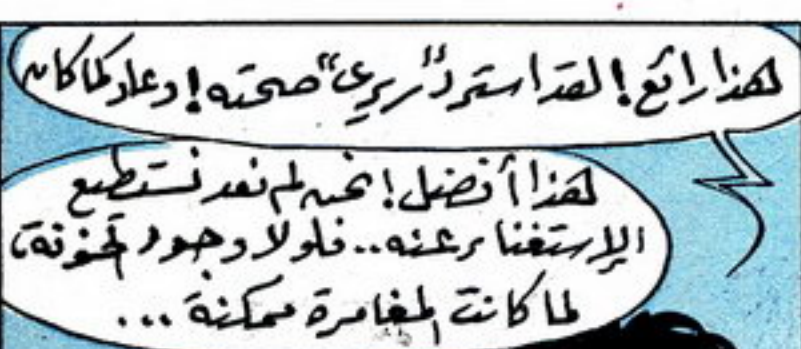 هذا رائع! لقد استرد "ريري" صحته! وعاد كما كان
هذا أفضل! نحن لم نعد نستطيع
الإستغناء عنه.. فلولا وجود
لما كانت المغامرة ممكنة...